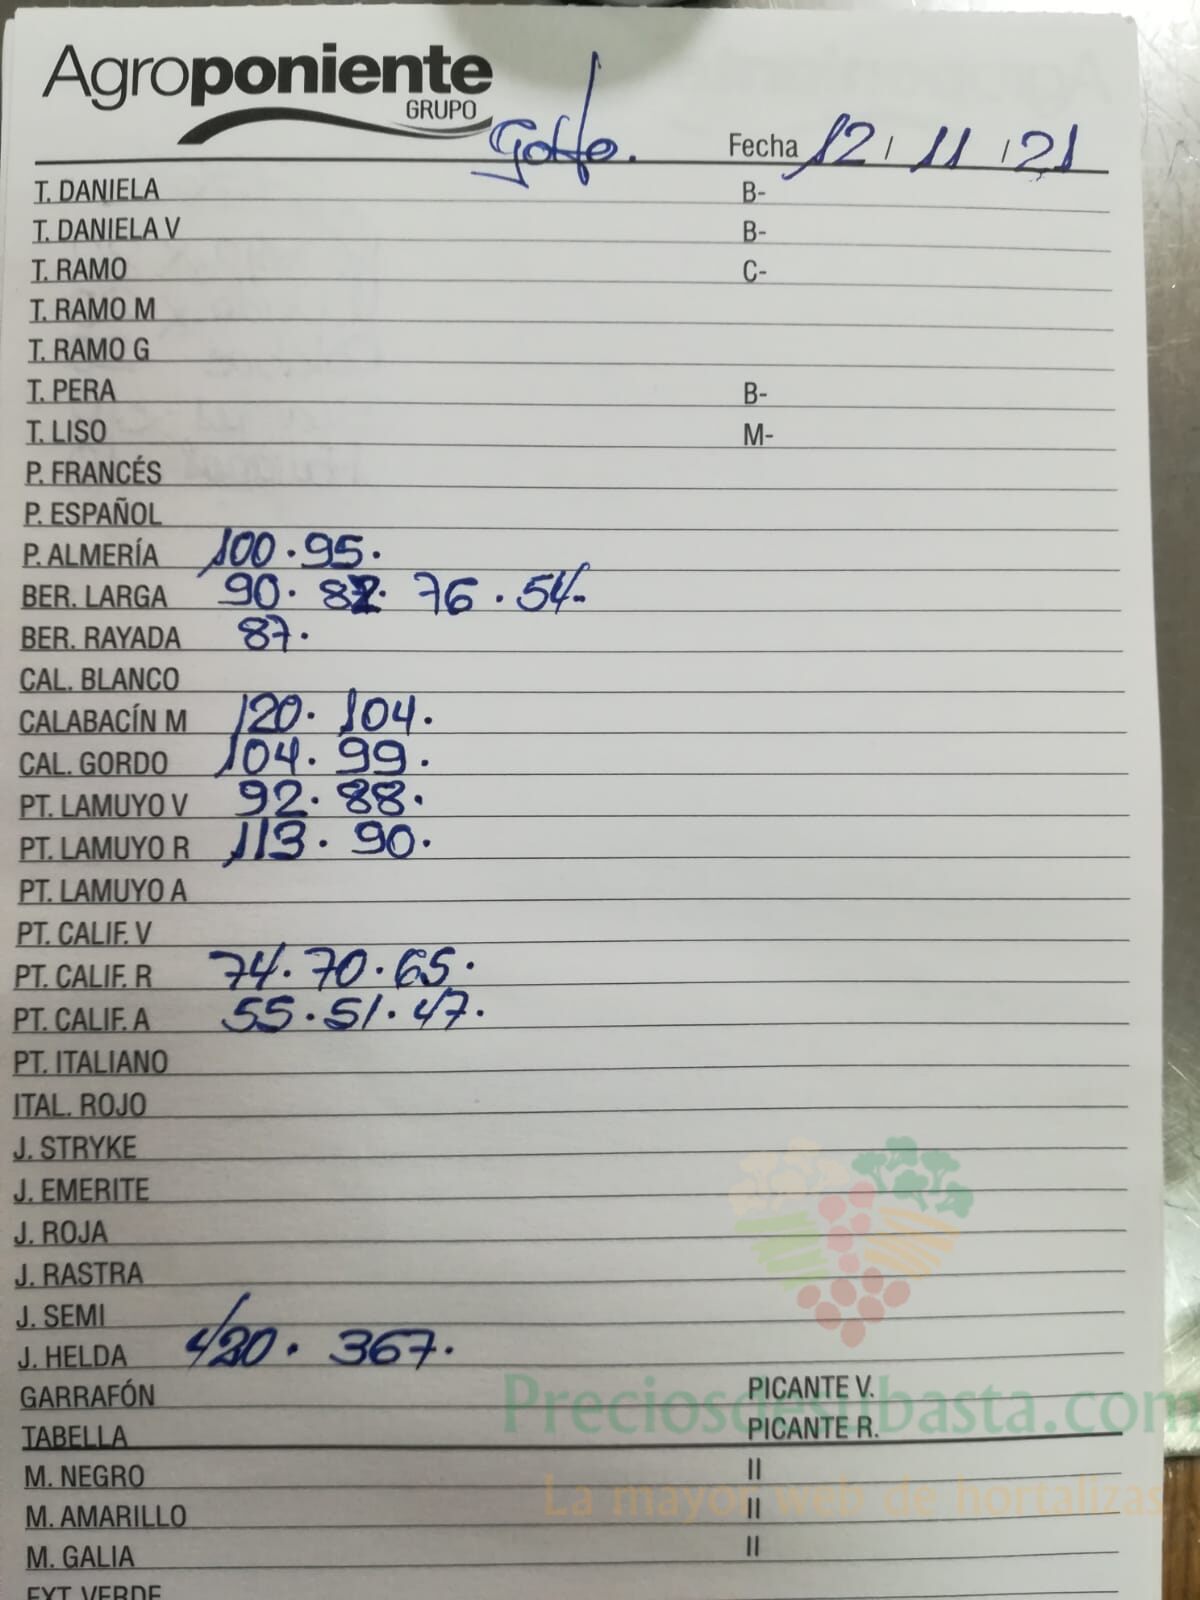 Agroponiente
GRUPO
Golfo. Fecha 12 / 11 / 21
T. DANIELA B-
T. DANIELA V B-
T. RAMO C-
T. RAMO M
T. RAMO G
T. PERA B-
T. LISO M-
P. FRANCÉS
P. ESPAÑOL
P. ALMERÍA 100 . 95 .
BER. LARGA 90 . 82 . 76 . 54 .
BER. RAYADA 87 .
CAL. BLANCO
CALABACÍN M 120 . 104 .
CAL. GORDO 104 . 99 .
PT. LAMUYO V 92 . 88 .
PT. LAMUYO R 113 . 90 .
PT. LAMUYO A
PT. CALIF. V
PT. CALIF. R 74 . 70 . 65 .
PT. CALIF. A 55 . 51 . 47 .
PT. ITALIANO
ITAL. ROJO
J. STRYKE
J. EMERITE
J. ROJA
J. RASTRA
J. SEMI
J. HELDA 420 . 367 .
GARRAFÓN PICANTE V.
Preciosdesubasta.com
TABELLA PICANTE R.
M. NEGRO II
La mayor web de hortalizas
M. AMARILLO II
M. GALIA II
EXT. VERDE